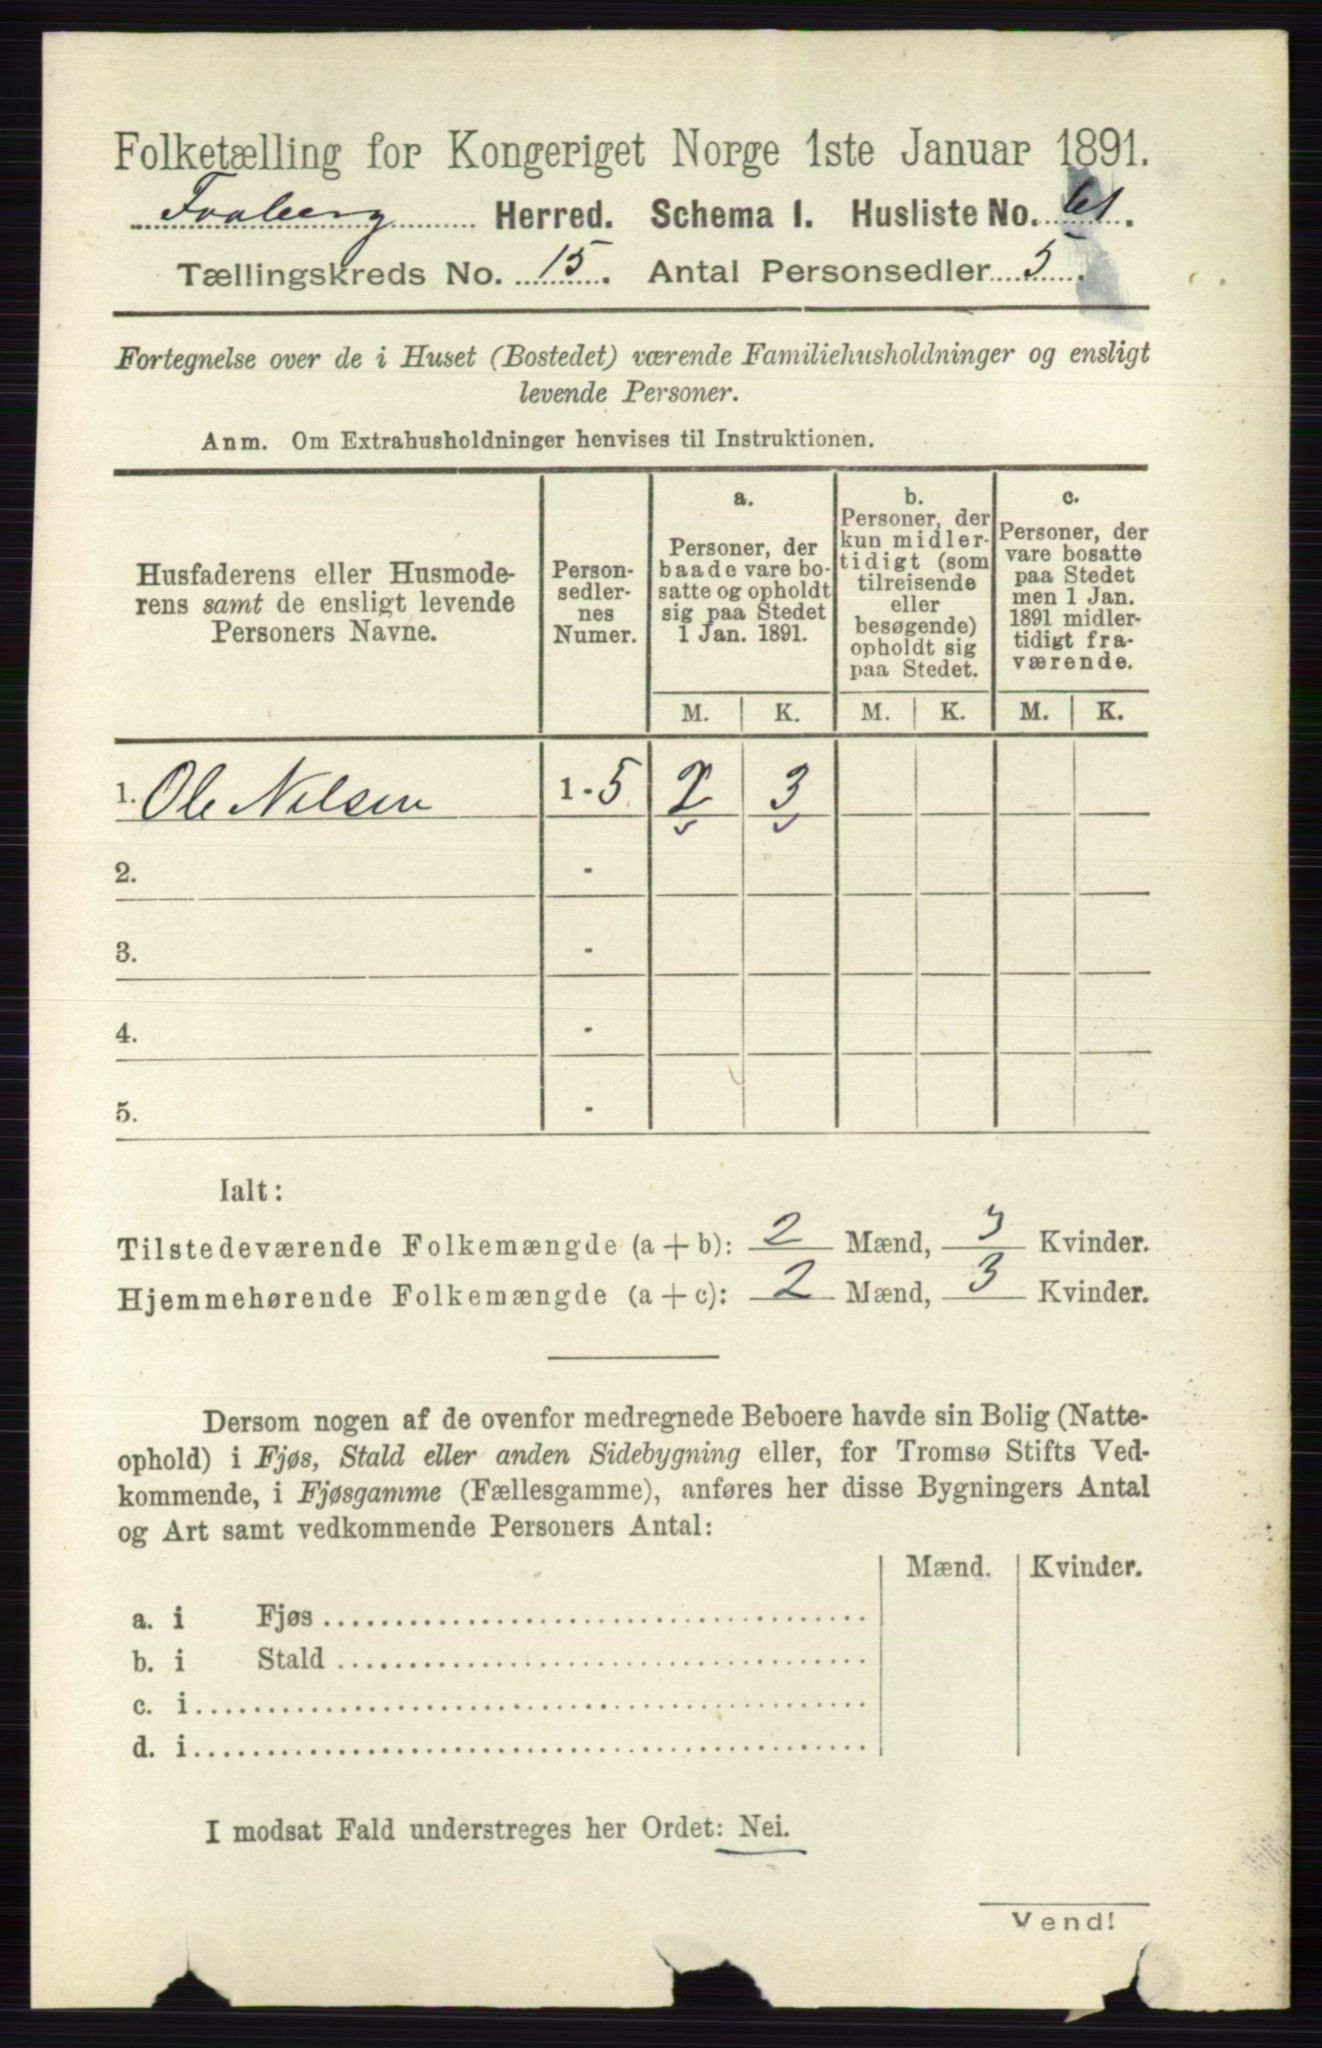 Folketælling for Kongeriget Norge 1ste Januar 1891.
Faaberg Herred. Schema I. Husliste No. 61.
Tællingskreds No. 15. Antal Personsedler 5.
Fortegnelse over de i Huset (Bostedet) værende Familiehusholdninger og ensligt
levende Personer.
Anm. Om Extrahusholdninger henvises til Instruktionen.
Husfaderens eller Husmode-
rens samt de ensligt levende
Personers Navne.
Person-
sedler-
nes
Numer.
a.
Personer, der
baade vare bo-
satte og opholdt
sig paa Stedet
1 Jan. 1891.
b.
Personer, der
kun midler-
tidigt (som
tilreisende
eller
besøgende)
opholdt sig
paa Stedet.
c.
Personer, der
vare bosatte
paa Stedet
men 1 Jan.
1891 midler-
tidigt fra-
værende.
M. K. M. K. M. K.
1. Ole Nilsen 1-5 2 3
2. -
3. -
4. -
5. -
Ialt:
Tilstedeværende Folkemængde (a+b): 2 Mænd, 3 Kvinder.
Hjemmehørende Folkemængde (a+c): 2 Mænd, 3 Kvinder.
Dersom nogen af de ovenfor medregnede Beboere havde sin Bolig (Natte-
ophold) i Fjøs, Stald eller anden Sidebygning eller, for Tromsø Stifts Ved-
kommende, i Fjøsgamme (Fællesgamme), anføres her disse Bygningers Antal
og Art samt vedkommende Personers Antal:
Mænd. Kvinder.
a. i Fjøs
b. i Stald
c. i
d. i
I modsat Fald understreges her Ordet: Nei.
Vend!